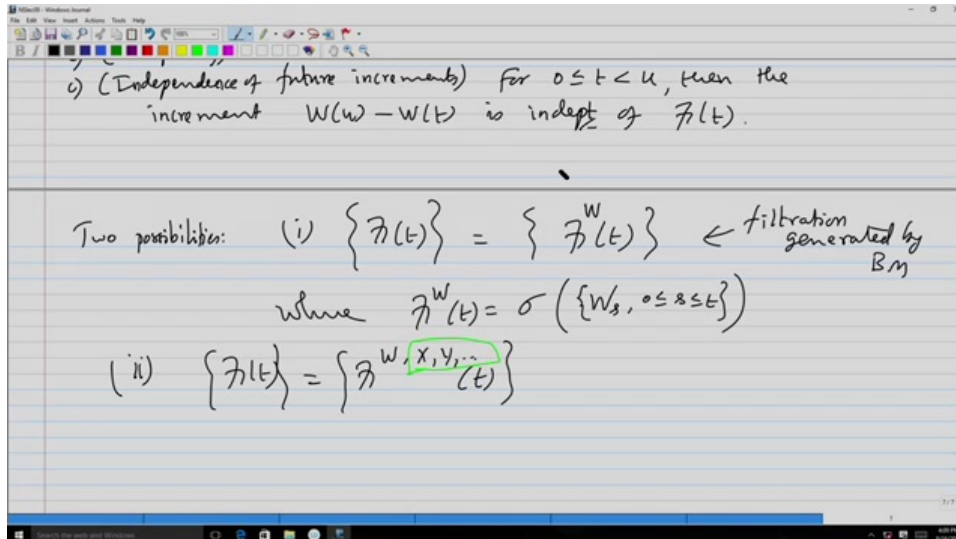 NDec09 - Windows Journal
File Edit View Insert Actions Tools Help
c) (Independence of future increments) For 0 ≤ t < u, then the
increment W(u) − W(t) is indept of ℱ(t).
Two possibilities: (i) {ℱ(t)} = {ℱ^W(t)} ← filtration
generated by
BM
where ℱ^W(t) = σ({W_s, 0 ≤ s ≤ t})
(ii) {ℱ(t)} = {ℱ^{W, X, Y, ...}(t)}
7/7
Search the web and Windows